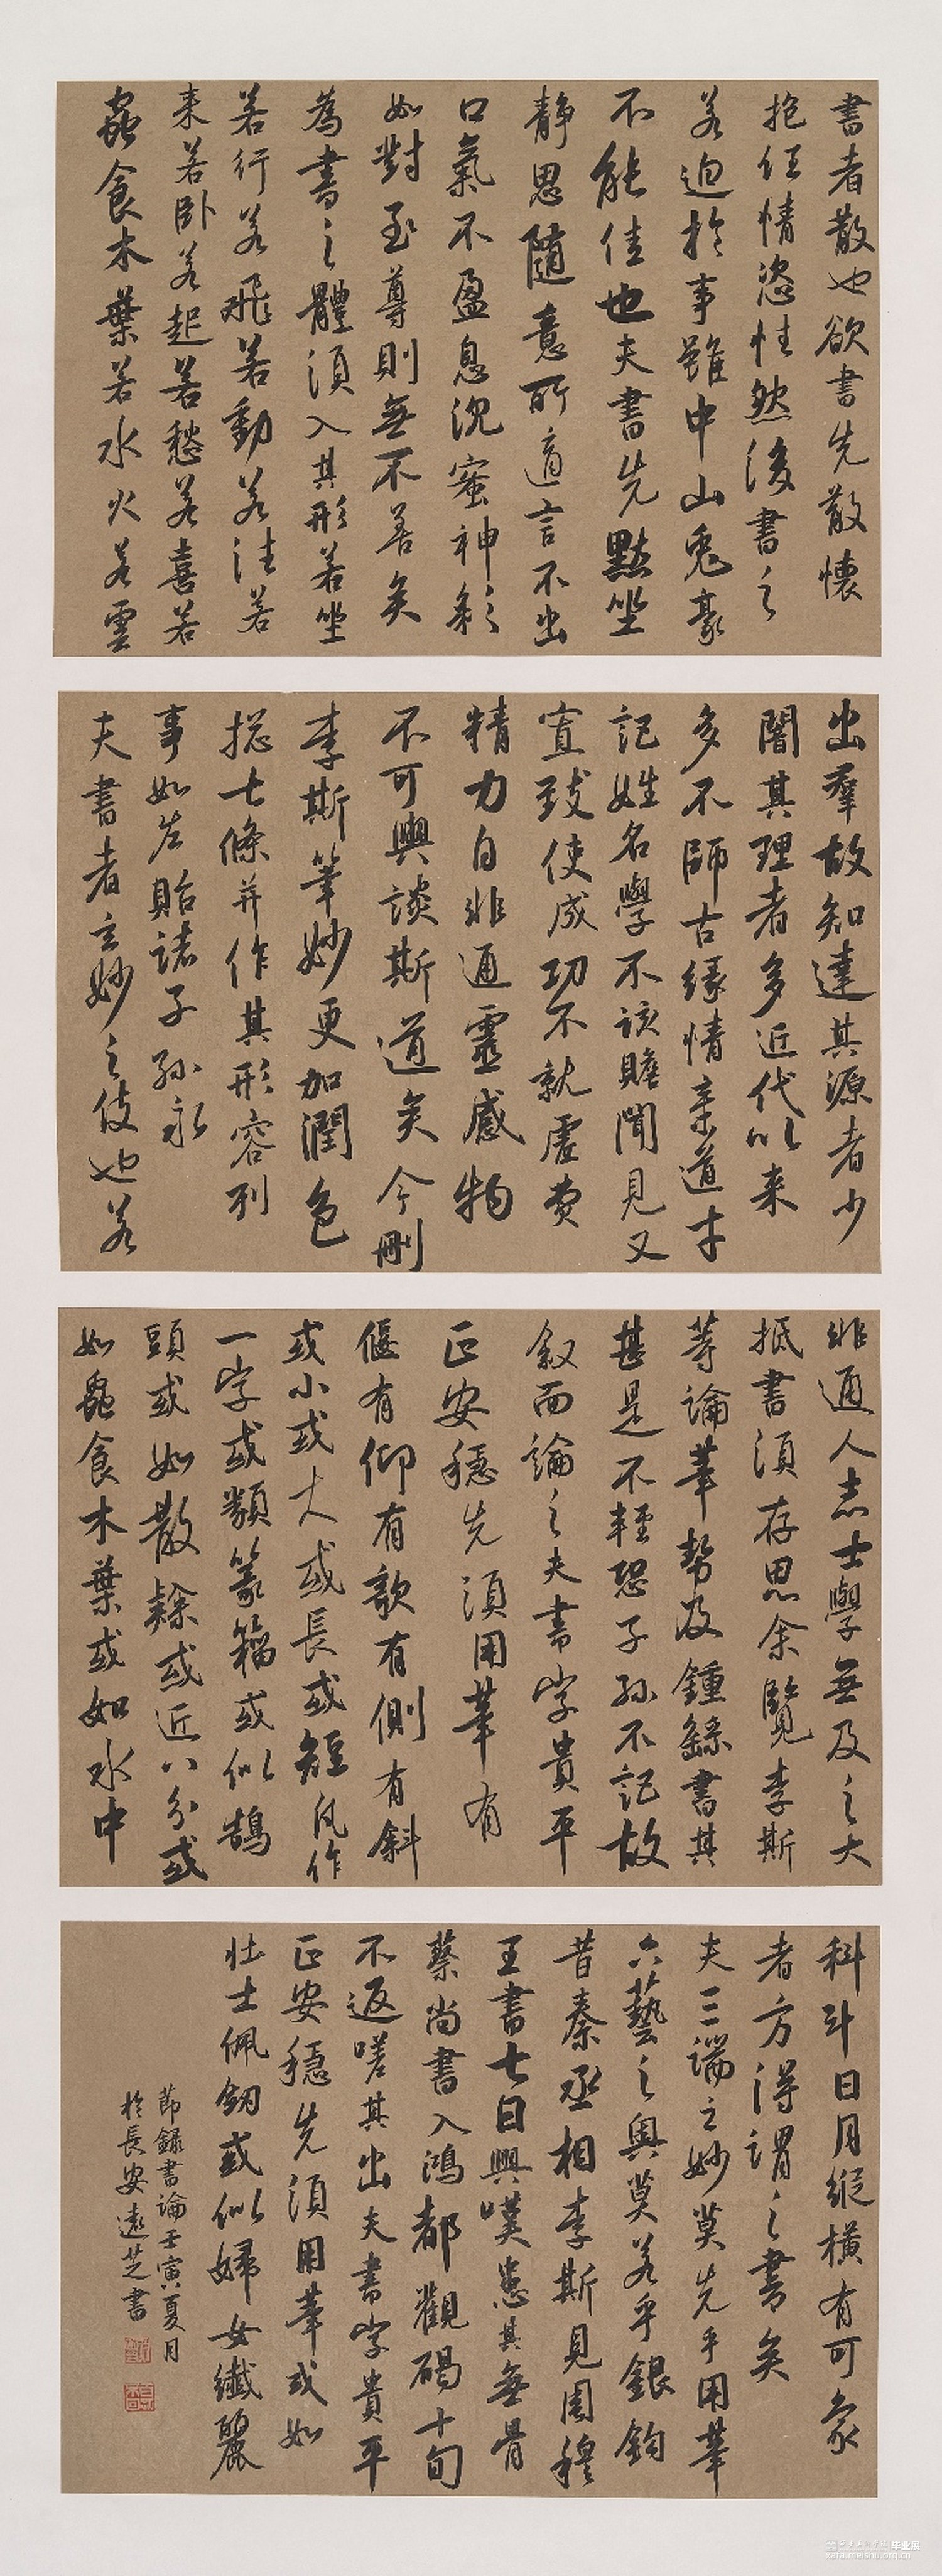 書者散也欲書先散懷
抱任情恣性然後書之
若迫於事雖中山兎豪
不能佳也夫書先默坐
靜思隨意所適言不出
口氣不盈息沉蜜神彩
如對至尊則無不善矣
為書之體須入其形若坐
若行若飛若動若往若
来若卧若起若愁若喜若
蟲食木葉若水火若雲
出羣故知達其源者少
闇其理者多近代以来
多不師古緣情棄道才
記姓名學不該贍聞見又
寡致使成功不就虛費
精力自非通靈感物
不可與談斯道矣今刪
李斯筆妙更加潤色
揔七條并作其形容列
事如左貽諸子孫永
夫書者玄妙之伎也若
非通人志士學無及之大
抵書須存思余覽李斯
等論筆勢及鍾繇書其
甚是不輕恐子孫不記故
叙而論之夫書字貴平
正安穩先須用筆有
偃有仰有欹有側有斜
或小或大或長或短凡作
一字或類篆籀或似鵠
頭或如散隸或近八分或
如蟲食木葉或如水中
科斗日月縱横有可象
者方得謂之書矣
夫三端之妙莫先乎用筆
六藝之奥莫若乎銀鈎
昔秦丞相李斯見周穆
王書七日興嘆患其無骨
蔡尚書入鴻都觀碣十旬
不返嗟其出夫書字貴平
正安穩先須用筆或如
壮士佩劒或似婦女纖麗
節録書論壬寅夏月
於長安遠芝書
毕业展
xafa.meishu.org.cn